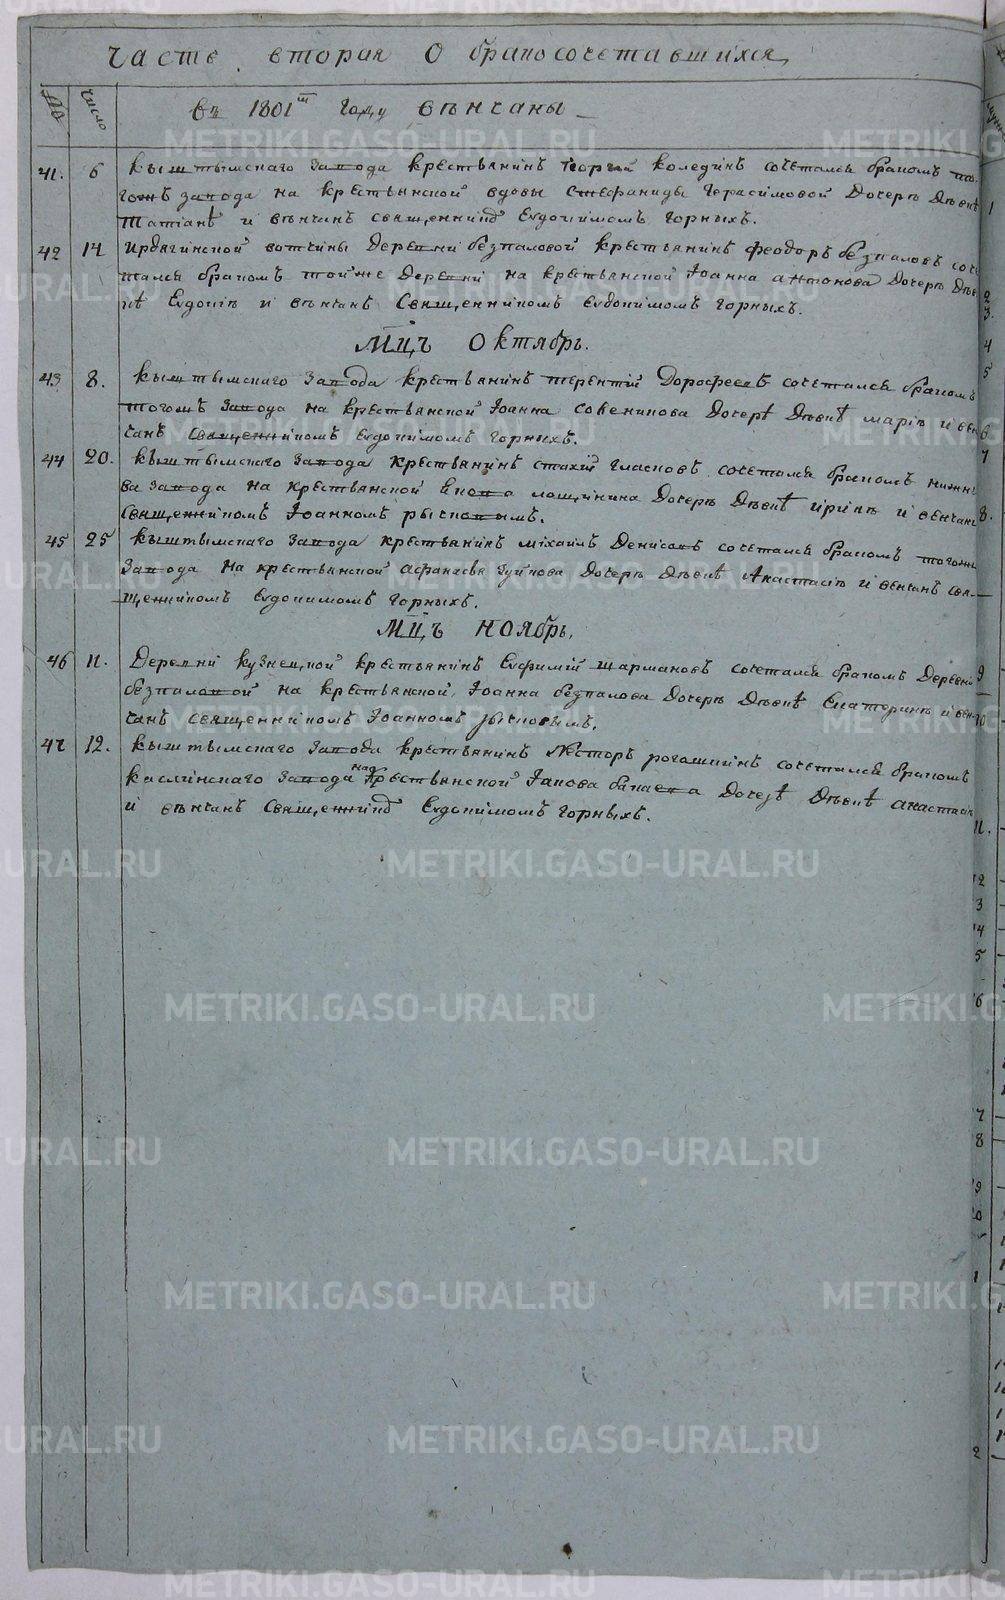 Часть вторая О бракосочетавшихся
№ число въ 1801м Году вѣнчаны
41. 6 Кыштымскаго завода крестьянинъ Георгий Коледин сочетался бракомъ то-
гожъ завода на крестьянской вдовы Стефаниды Герасимовой дочерѣ дѣвкѣ
Татіанѣ и вѣнчанъ священник Евдокимомъ Горныхъ.
42 14 вотчины деревни безпаловой крестьянинъ Феодоръ безпаловъ соче
тался бракомъ той же деревни на крестьянской Іоанна антонова дочерѣ дѣв
кѣ Евдокіи и вѣнчанъ Священникомъ Евдокимомъ Горныхъ.
Мцъ Октябрь.
43 8. Кыштымскаго завода крестьянинъ терентій Дорофеевъ сочетался бракомъ
тогожъ завода на крестьянской Іоанна дочерѣ дѣвкѣ маріи и вен
чанъ священникомъ Евдокимомъ Горныхъ.
44 20. Кыштымскаго завода крестьянинъ стахій гласковъ сочетался бракомъ
завода на крестьянской дочерѣ дѣвкѣ ирінѣ и венчанъ
священникомъ Іоанномъ
45 25 Кыштымскаго завода крестьянинъ міхаилъ Денисовъ сочетался бракомъ тогожъ
завода на крестьянской Афанасья Зуйкова дочерѣ дѣвкѣ Анастасіи и венчанъ свя-
щенникомъ Евдокимомъ Горныхъ.
Мцъ Ноябрь.
46 11. Деревни кузнецкой крестьянинъ Евфимій шармановъ сочетался бракомъ деревни
безпаловой на крестьянской Іоанна безпалова дочерѣ дѣвкѣ Екатеринѣ и вен
чанъ священникомъ Іоанномъ
47 12. Кыштымскаго завода крестьянинъ Несторъ рогошинъ сочетался бракомъ
каслинскаго завода на крестьянской Іакова дочерѣ дѣвкѣ анастасіи
и вѣнчанъ священник Евдокимомъ Горныхъ.